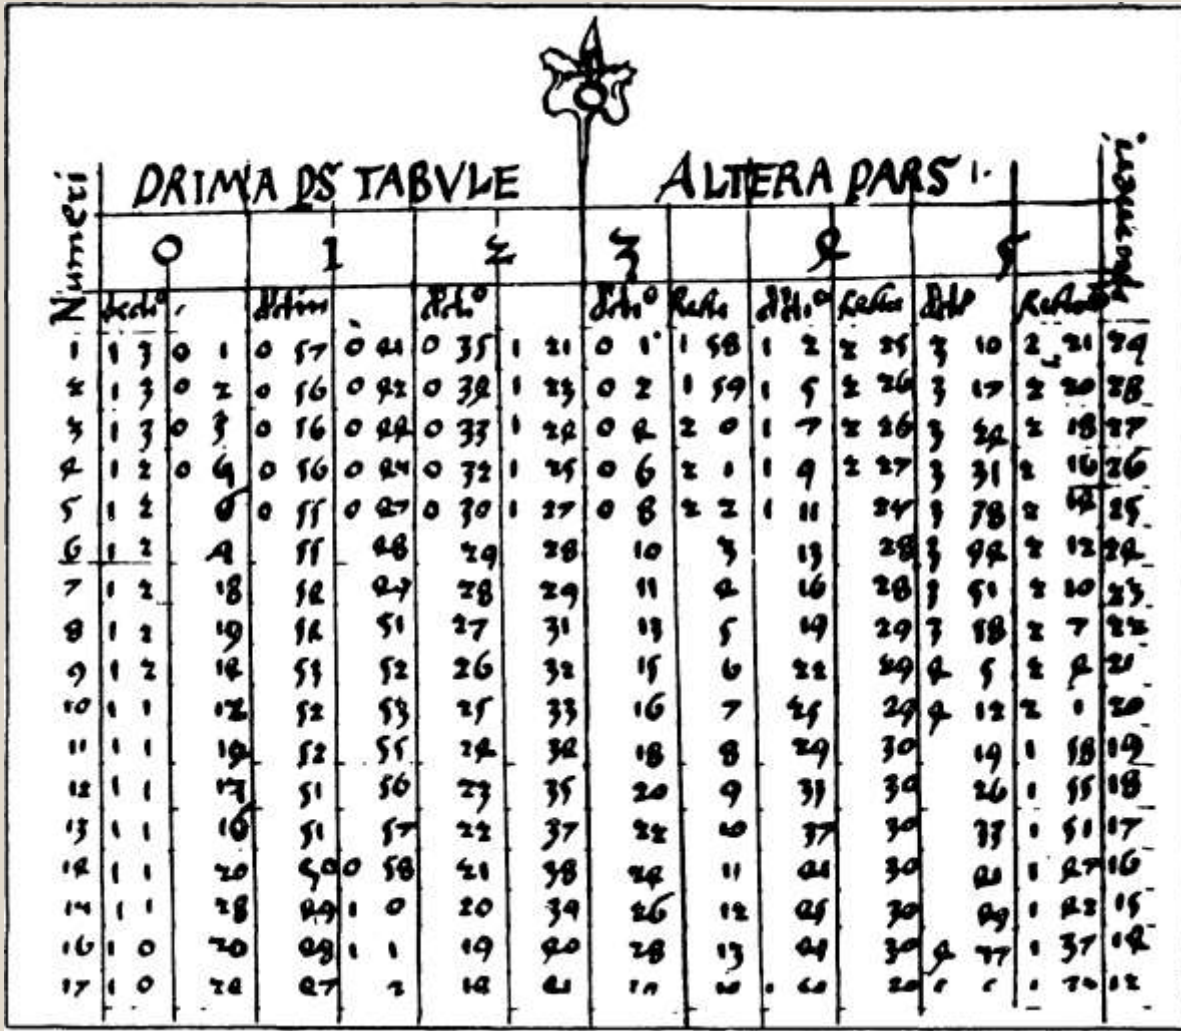 DRIMA PS TABVLE ALTERA PARS 1.
Numeri
0 1 2 3 4 5
1 1 3 0 1 0 57 0 41 0 35 1 21 0 1 1 58 1 2 2 25 3 10 2 21 29
2 1 3 0 2 0 56 0 42 0 34 1 23 0 2 1 59 1 5 2 26 3 17 2 20 28
3 1 3 0 3 0 56 0 44 0 33 1 24 0 4 2 0 1 7 2 26 3 24 2 18 27
4 1 2 0 0 56 0 44 0 32 1 25 0 6 2 1 1 9 2 27 3 31 2 16 26
5 1 2 0 55 0 47 0 30 1 27 0 8 2 2 1 11 27 3 38 2 14 25
6 1 2 55 48 29 28 10 3 13 28 3 44 2 12 24
7 1 2 18 54 49 28 29 11 4 16 28 3 51 2 10 23
8 1 2 19 54 51 27 31 13 5 19 29 3 58 2 7 22
9 1 2 14 53 52 26 32 15 6 22 29 4 5 2 4 21
10 1 1 12 52 53 25 33 16 7 25 29 4 12 2 1 20
11 1 1 14 52 55 24 34 18 8 29 30 19 1 58 19
12 1 1 17 51 56 23 35 20 9 33 30 26 1 55 18
13 1 1 16 51 57 22 37 22 10 37 30 33 1 51 17
14 1 1 20 50 0 58 21 38 24 11 41 30 41 1 47 16
1 1 28 49 1 0 20 39 26 12 45 30 49 1 42 15
16 1 0 20 48 1 1 19 40 28 13 30 4 1 37 14
17 1 0 24 47 2 41